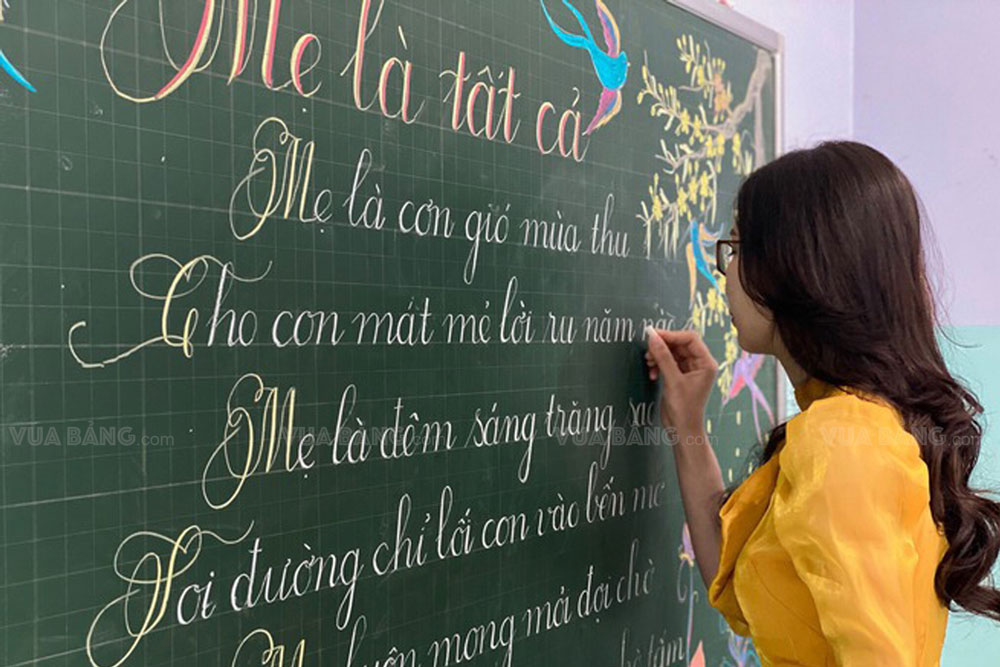 Mẹ là tất cả
Mẹ là cơn gió mùa thu
Cho con mát mẻ lời ru năm nào
Mẹ là đêm sáng trăng sao
Soi đường chỉ lối con vào bến mơ
Mẹ luôn mong mỏi đợi chờ
VUA BẢNG.com
VUA BẢNG.com
VUA BẢNG.com
VUA BẢNG.com